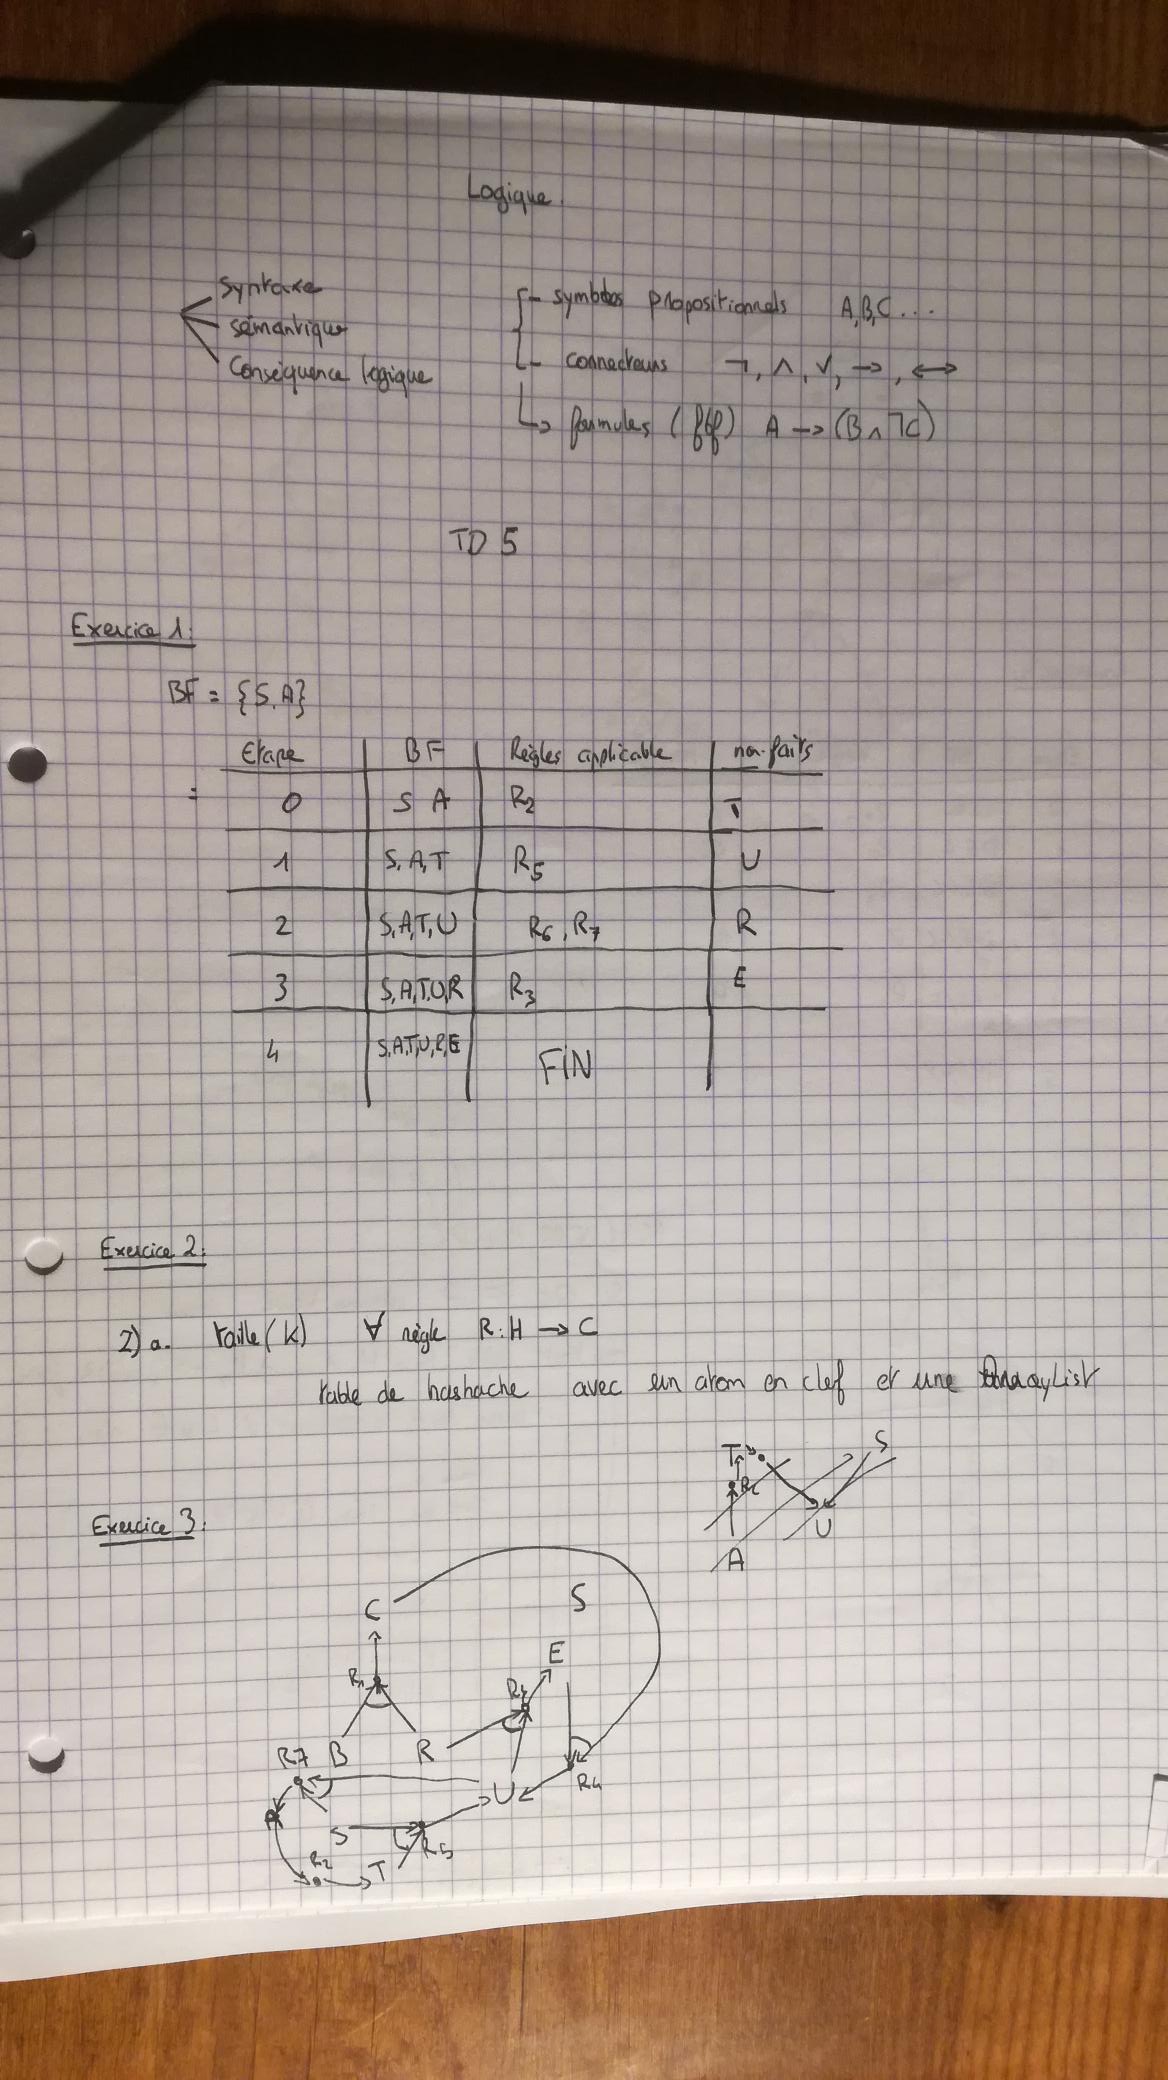 Logique.
Syntaxe
sémantique
Conséquence logique
- symboles propositionnels A,B,C ...
- connecteurs ¬, ∧, ∨, →, ↔
↳ formules (fbf) A → (B ∧ ¬C)
TD 5
Exercice 1:
BF = {S, A}
Etape BF Règles applicable nv-faits
= 0 S A R2 T
1 S, A, T R5 U
2 S,A,T,U R6, R7 R
3 S,A,T,U,R R3 E
4 S,A,T,U,R,E FIN
Exercice 2:
2) a. taille(k) ∀ règle R: H → C
table de hashache avec un atom en clef et une ArrayList
T S
R2
U
A
Exercice 3:
C S
E
R1
B R
R7 U R4
A S R5
R2 T